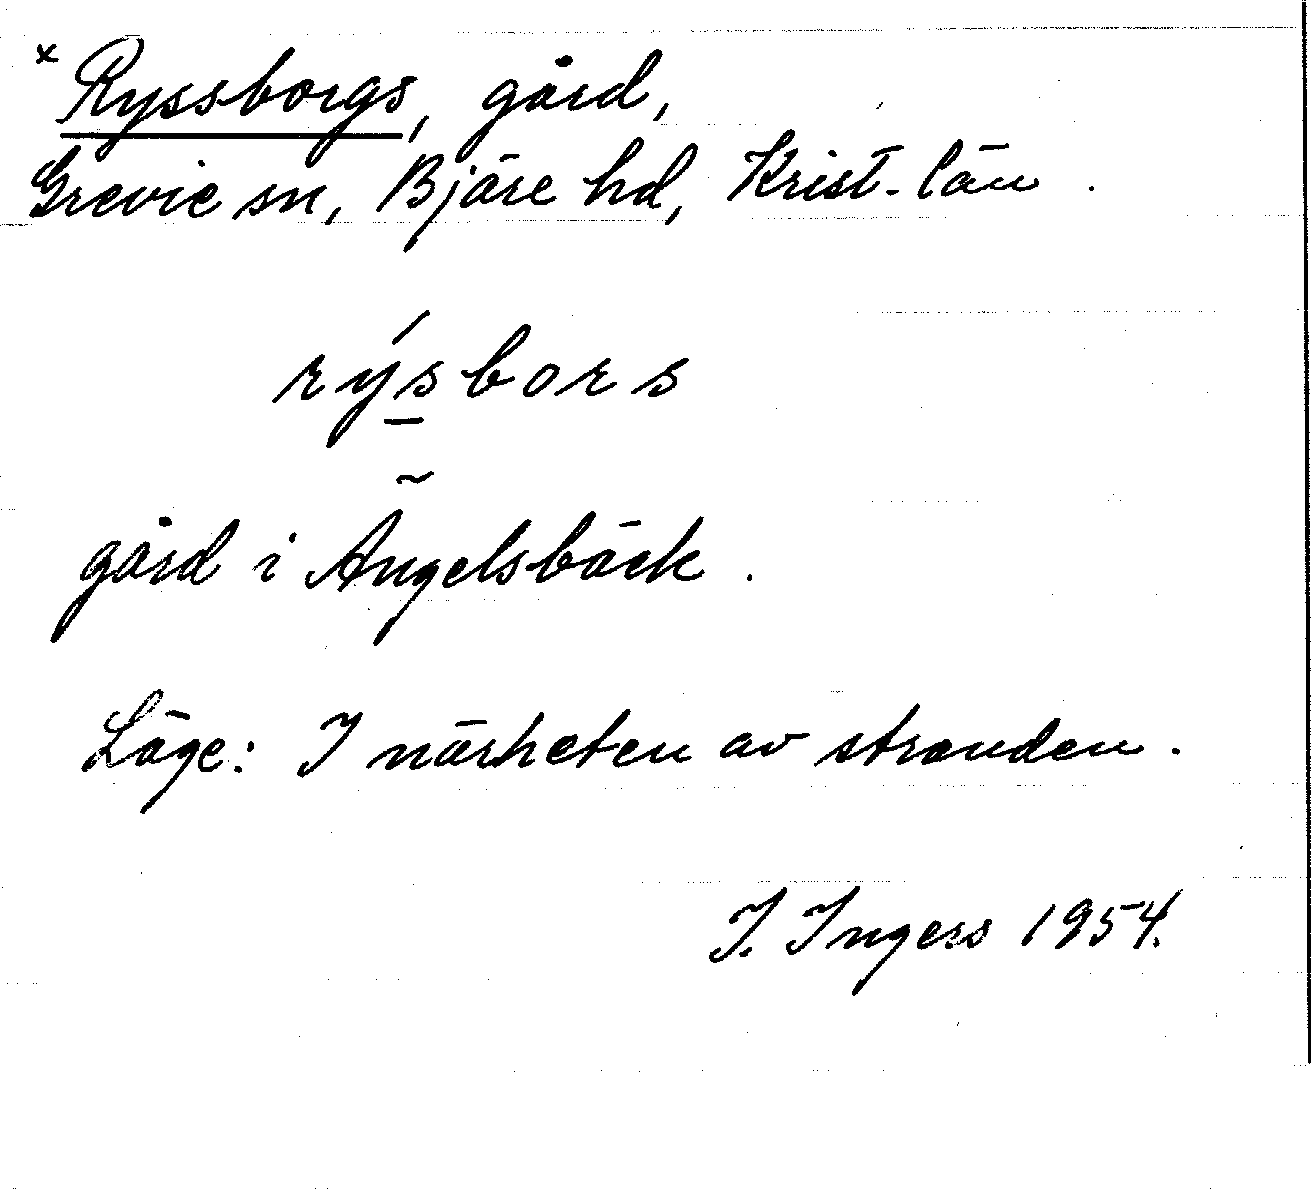 × Ryssborgs, gård,
Grevie sn, Bjäre hd, Krist. län.
rýsbors
gård i Ängelsbäck.
Läge: I närheten av stranden.
I. Ingers 1954.